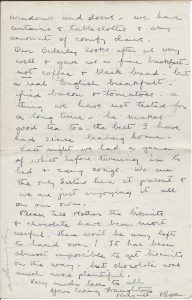 windows and doors - we have
curtains & tablecloths & any
amount of comfy chairs.
Our Orderly looks after us very
well & gave us a fine breakfast
not coffee & black bread. but
a real English breakfast -
fried bacon & tomatoes: a
thing we have not tasted for
a long time - he makes
good tea too. the best I have
had since leaving home.
Last night we had a game
of whist before turning in to
bed & sang songs. We are
the only Sisters here at present &
we are just enjoying it all
on our own.
Please tell Mother the biscuits
& chocolate have been most
useful. they won't be any left
to hand over! It has been
almost impossible to get biscuits
on the way. but chocolate was
much more plentiful.
Very much love to all
Your loving daughter
Margaret